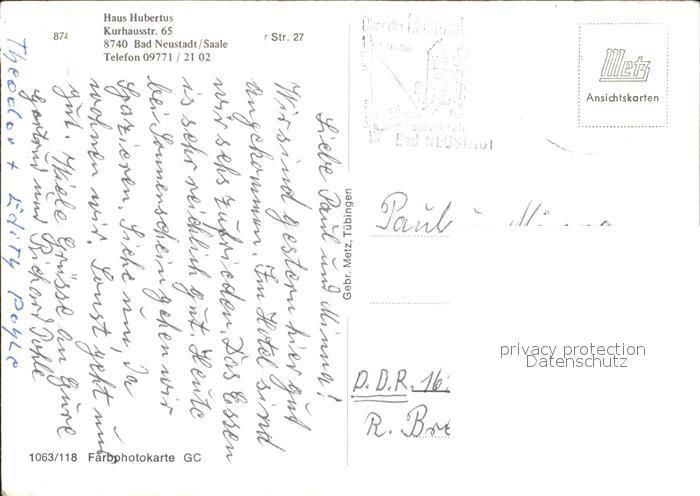 Haus Hubertus
Kurhausstr. 65
8740 Bad Neustadt/Saale
Telefon 09771 / 21 02
r Str. 27
Metz
Ansichtskarten
Bad NEUSTADT
Liebe Paul und Minna!
Wir sind gestern hier gut
angekommen. Im Hotel sind
wir sehr zufrieden. Das Essen
is sehr reichlich gut. Heute
bei Sonnenschein gehen wir
spazieren. Siehe nun, da
wohnen wir. Sonst geht uns
gut. Viele Grüsse an Eure
und Richard
Theodor + Edith
Gebr. Metz, Tübingen
Paul u. Minna
D.D.R. 16
R. Bre
privacy protection
Datenschutz
1063/118 Farbphotokarte GC